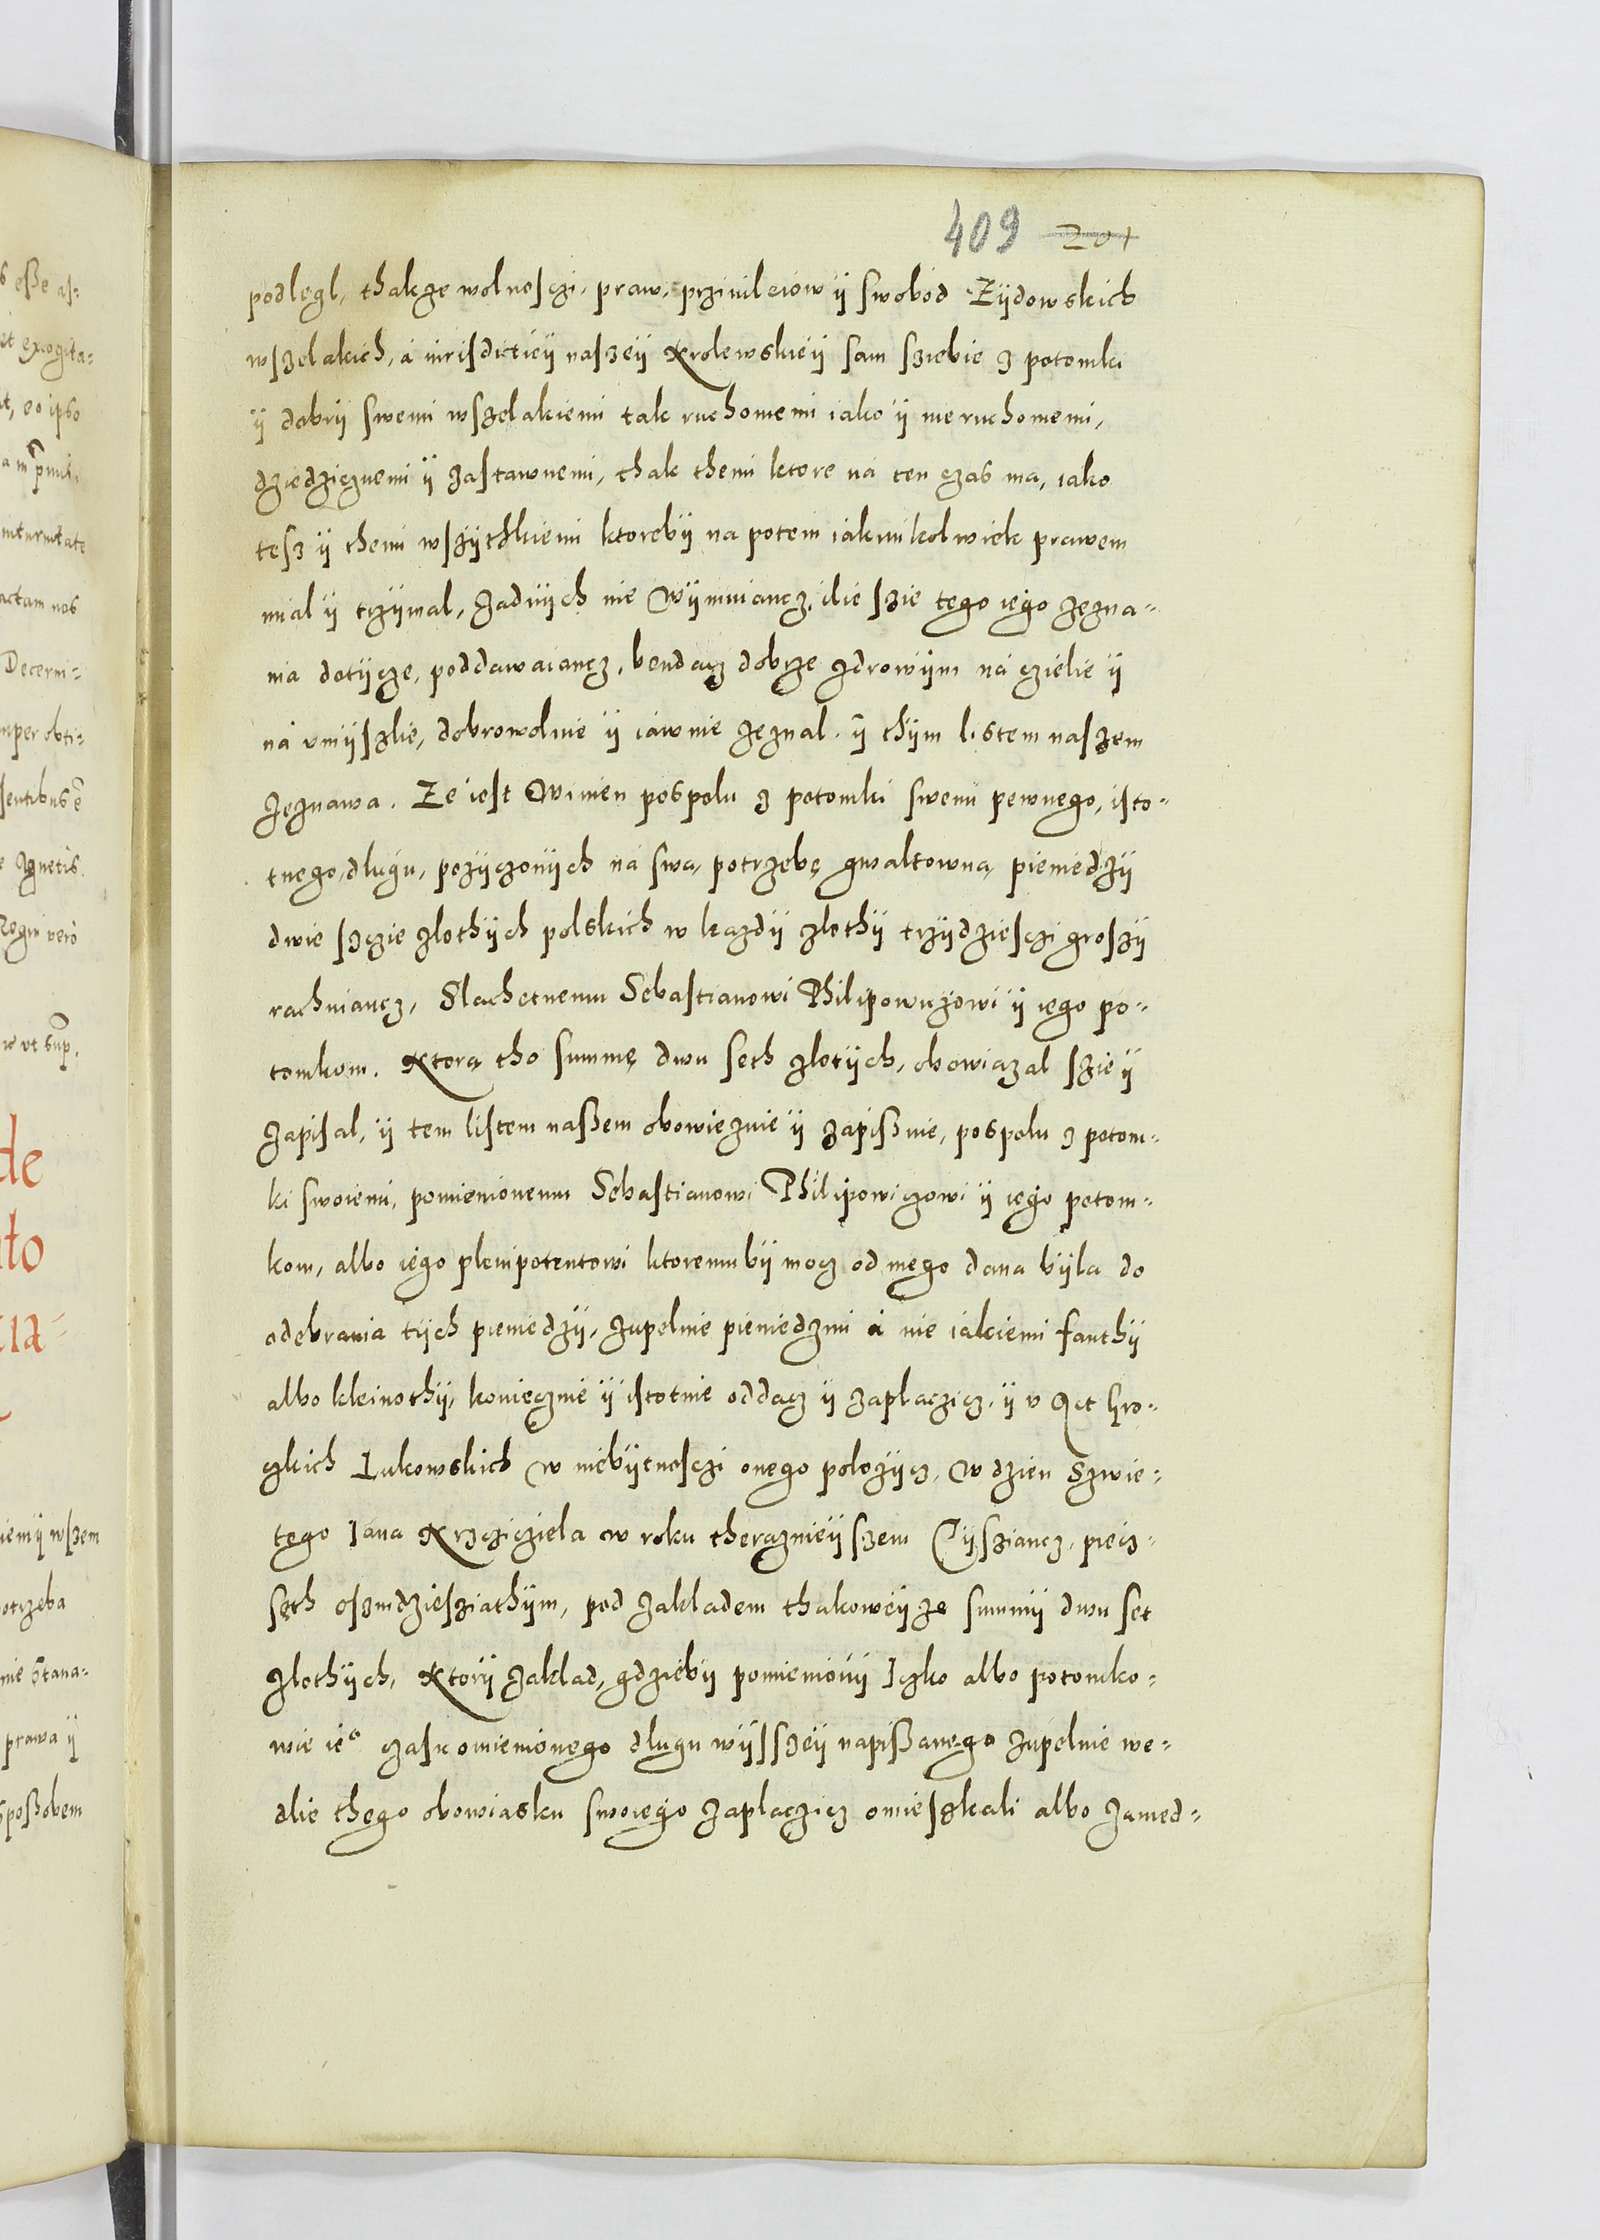 409 201
podlegl, thakze wolnosczi, praw, prziuileiow ÿ swobod Zÿdowskich
wszelakich, á iurisdictieÿ naszeÿ Krolewskieÿ sam sziebie z potomki
ÿ dobrÿ swemi wszelakiemi tak ruchomemi iako ÿ nieruchomemi,
dziedzicznemi ÿ zastawnemi, thak themi ktore ná ten czas ma, iako
tesz ÿ themi wszÿthkiemi ktorebÿ na potem iakimkolwiek prawem
mial ÿ trzÿmal, zadnÿch nie wÿmuiancz, ilie szie tego iego zezna-
nia dotÿcze, poddawaiancz, bendacz dobrze zdrowÿm ná czielie ÿ
ná vmÿszlie, dobrowolnie ÿ iáwnie zeznal. ÿ thÿm listem naszem
zeznawa. Ze iest Winien pospolu z potomki swemi pewnego, isto-
tnego, dlugu, pozÿczonÿch ná swą potrzebę gwaltowną pieniedzÿ
dwie szczie zlothÿch polskich w kazdÿ zlothÿ trzÿdziesczi groszÿ
rachuiancz, Slachetnemu Sebastianowi Philipowiczowi ÿ iego po-
tomkom. Ktorą tho summę dwu seth zlotÿch, obowiązal szie ÿ
zapisal, ÿ tem listem naßem obowięznie ÿ zapißuie, pospolu z potom-
ki swoiemi, pomienionemu Sebastianowi Philipowiczowi ÿ iego potom-
kom, albo iego plenipotentowi ktoremubÿ mocz od niego dana bÿla do
odebrania tÿch pieniedzÿ, zupelnie pieniedzmi á nie iakiemi fanthÿ
albo kleinothÿ, koniecznie ÿ istotnie oddacz ÿ zaplaczicz, ÿ v Act Gro-
czkich Lukowskich w niebÿtnosczi onego polozÿcz, w dzien Szwie-
tego Jana Krzcziciela w roku theraznieÿszem Tÿsziancz, piecz-
seth oszmdziesziathÿm, pod zakladem thakoweÿze summÿ dwu set
zlothÿch, Ktorÿ zaklad, gdziebÿ pomienionÿ Iczko albo potomko-
wie ieº czasu omienionego dlugu wÿsszeÿ napißanego zupelnie we-
dlie thego obowiasku swoiego zaplaczicz omieszkali albo zamed-